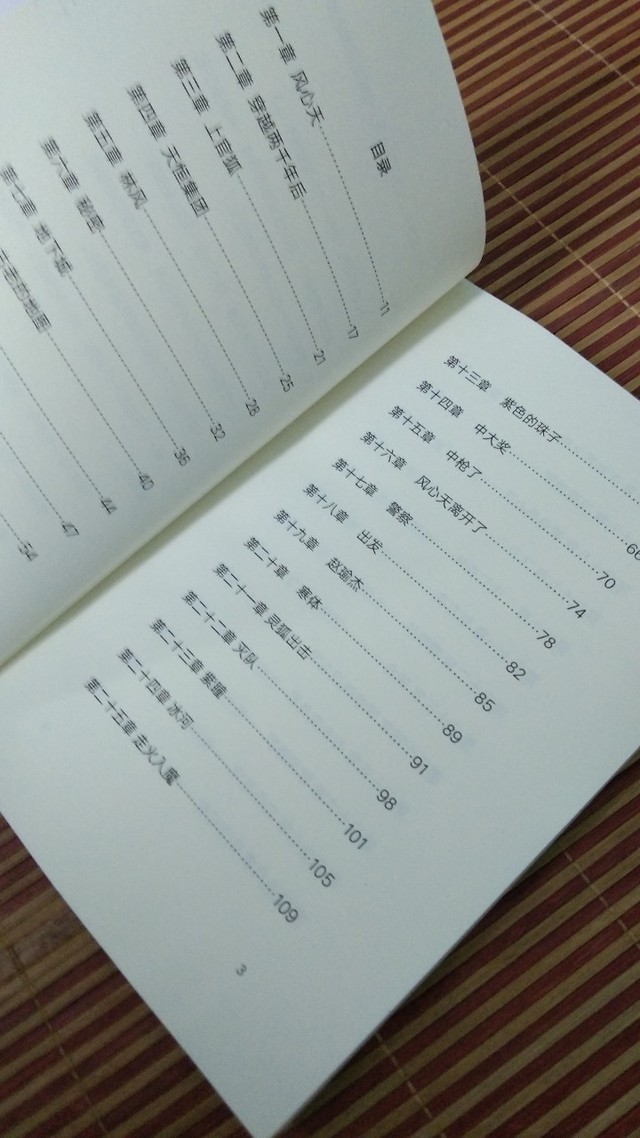 目录
第一章 风心天……11
第二章 穿越两千年后……17
第三章 上官狐……21
第四章 天恒集团……25
第五章……28
第六章 秘密……32
第七章 地下城……36
……40
……44
……47
……54
第十三章 紫色的珠子……
第十四章 中大奖……66
第十五章 中枪了……70
第十六章 风心天离开了……74
第十七章 警察……78
第十八章 出发……82
第十九章 瑜杰……85
第二十章……89
第二十一章 灵狐出击……91
第二十二章 灭队……98
第二十三章 紫瞳……101
第二十四章 冰河……105
第二十五章 走火入魔……109
3